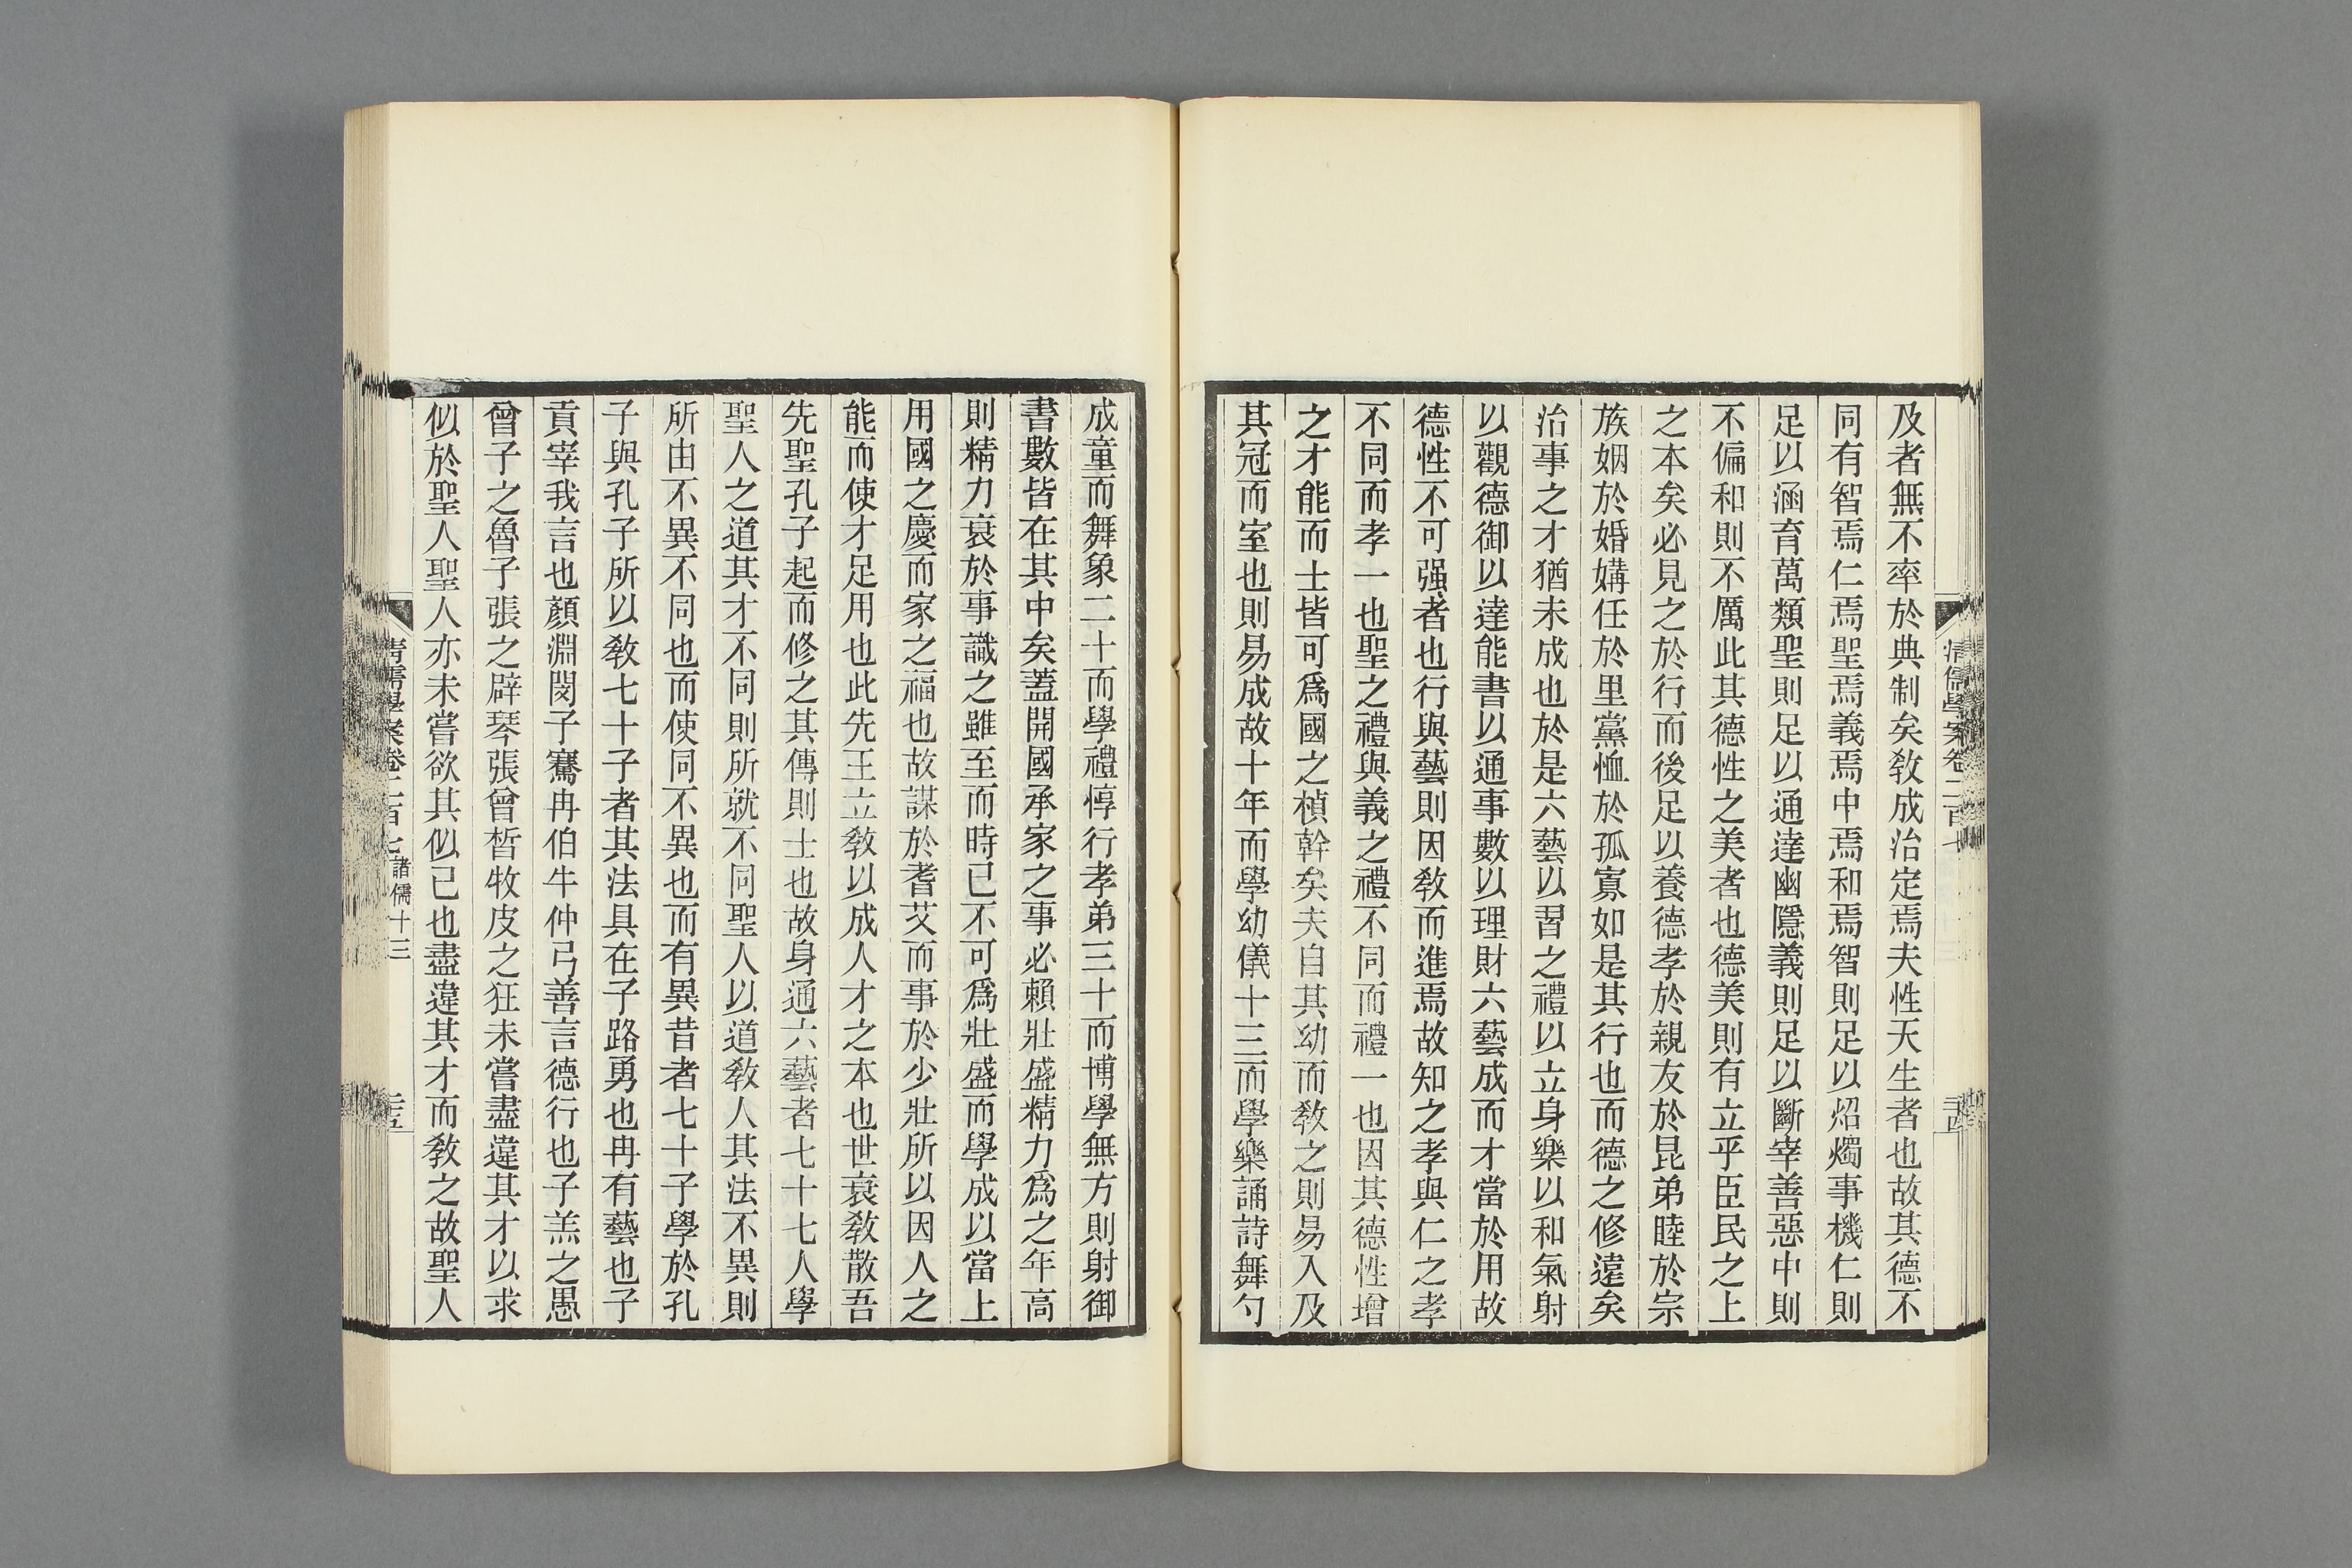 及者無不率於典制矣敎成治定焉夫性天生者也故其德不
同有智焉仁焉聖焉義焉中焉和焉智則足以炤燭事機仁則
足以涵育萬類聖則足以通達幽隱義則足以斷宰善惡中則
不偏和則不厲此其德性之美者也德美則有立乎臣民之上
之本矣必見之於行而後足以養德孝於親友於昆弟睦於宗
族姻於婚媾任於里黨恤於孤寡如是其行也而德之修遠矣
治事之才猶未成也於是六藝以習之禮以立身樂以和氣射
以觀德御以達能書以通事數以理財六藝成而才當於用故
德性不可强者也行與藝則因敎而進焉故知之孝與仁之孝
不同而孝一也聖之禮與義之禮不同而禮一也因其德性增
之才能而士皆可爲國之楨幹矣夫自其幼而敎之則易入及
其冠而室也則易成故十年而學幼儀十三而學樂誦詩舞勺
成童而舞象二十而學禮惇行孝弟三十而博學無方則射御
書數皆在其中矣蓋開國承家之事必賴壯盛精力爲之年高
則精力衰於事識之雖至而時已不可爲壯盛而學成以當上
用國之慶而家之福也故謀於耆艾而事於少壯所以因人之
能而使才足用也此先王立敎以成人才之本也世衰敎散吾
先聖孔子起而修之其傳則士也故身通六藝者七十七人學
聖人之道其才不同則所就不同聖人以道敎人其法不異則
所由不異不同也而使同不異也而有異昔者七十子學於孔
子與孔子所以敎七十子者其法具在子路勇也冉有藝也子
貢宰我言也顏淵閔子騫冉伯牛仲弓善言德行也子羔之愚
曾子之魯子張之辟琴張曾晳牧皮之狂未嘗盡違其才以求
似於聖人聖人亦未嘗欲其似己也盡違其才而敎之故聖人
清儒學案卷二百七
諸儒十三